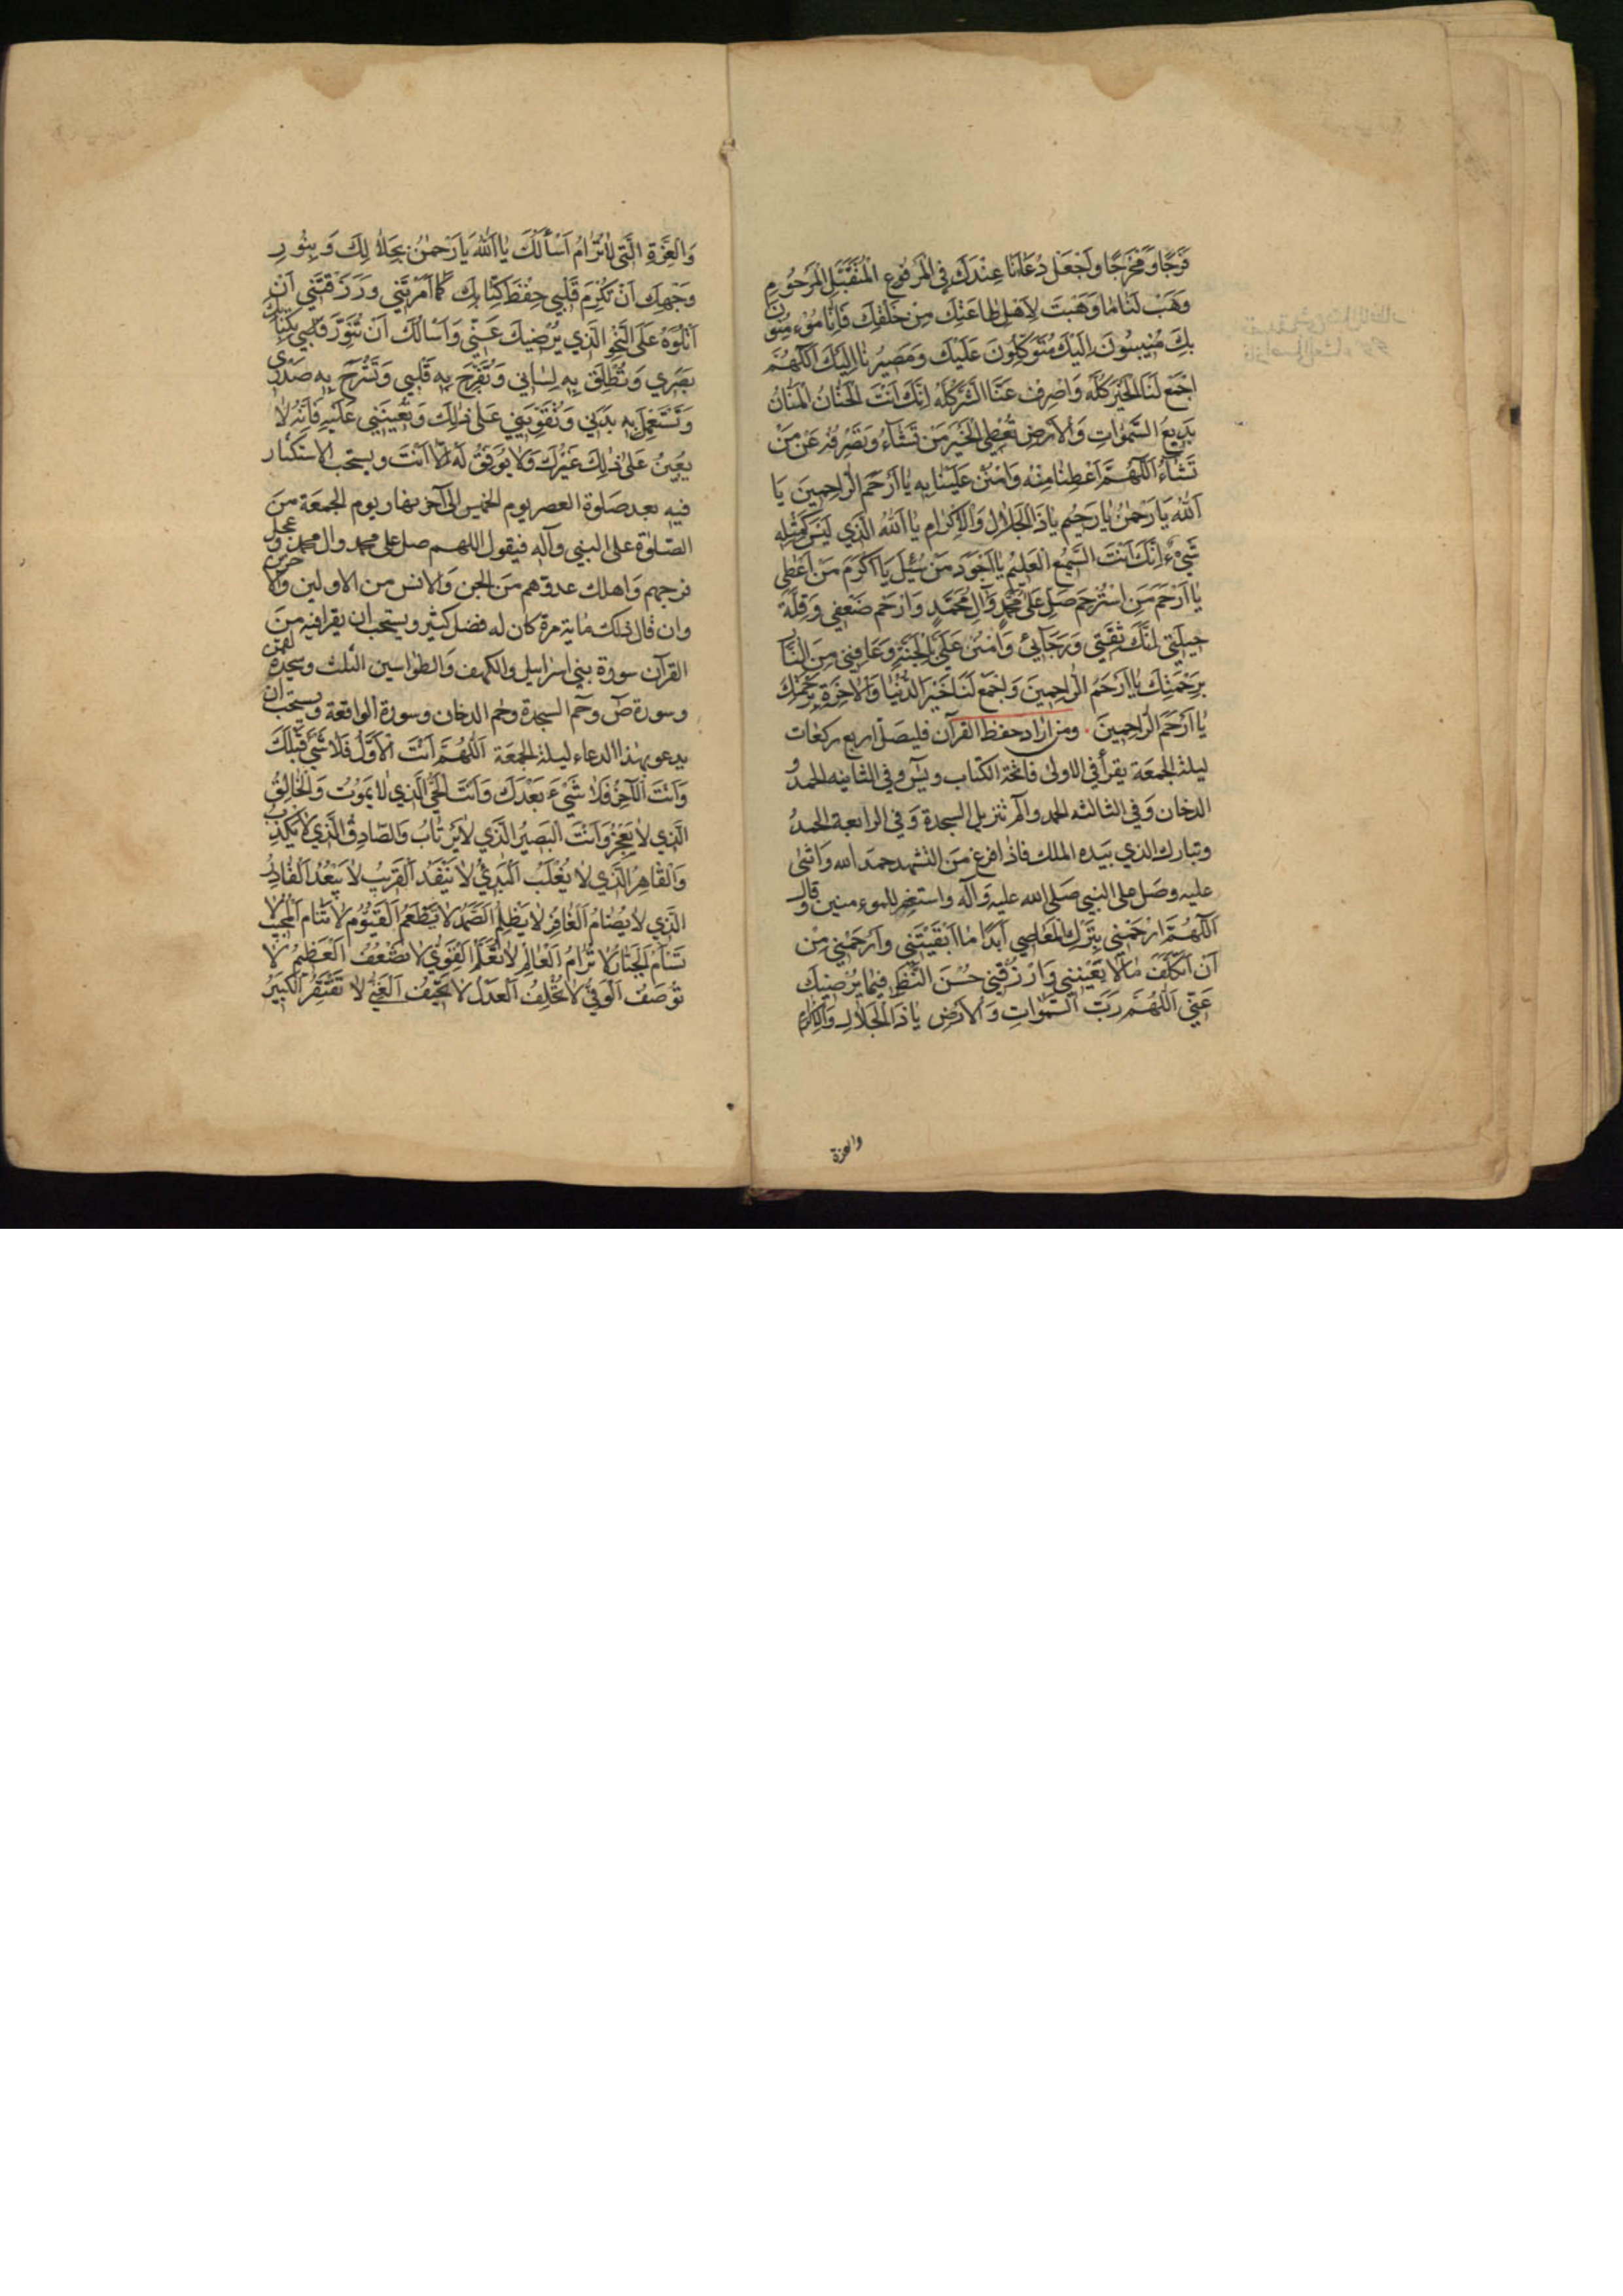 فَرَجًا وَمَخْرَجًا وَاجْعَلْ دُعَاءَنَا عِنْدَكَ فِي الْمَرْفُوعِ الْمُتَقَبَّلِ الْمَرْحُومِ
وَهَبْ لَنَا مَا وَهَبْتَ لِاَهْلِ طَاعَتِكَ مِنْ خَلْقِكَ فَاِنَّا مُوءمِنُونَ
بِكَ مُنِيبُونَ اِلَيْكَ مُتَوَكِّلُونَ عَلَيْكَ وَمَصِيرُنَا اِلَيْكَ اَللّٰهُمَّ
اجْمَعْ لَنَا الْخَيْرَ كُلَّهُ وَاصْرِفْ عَنَّا الشَّرَّ كُلَّهُ اِنَّكَ اَنْتَ الْحَنَّانُ الْمَنَّانُ
بَدِيعُ السَّمٰوَاتِ وَالْاَرْضِ تُعْطِي الْخَيْرَ مَنْ تَشَاءُ وَتَصْرِفُهُ عَنْ مَنْ
تَشَاءُ اَللّٰهُمَّ اَعْطِنَا مِنْهُ وَامْنُنْ عَلَيْنَا بِهِ يَا اَرْحَمَ الرَّاحِمِينَ يَا
اَللّٰهُ يَا رَحْمٰنُ يَا رَحِيمُ يَا ذَا الْجَلَالِ وَالْاِكْرَامِ يَا اَللّٰهُ الَّذِي لَيْسَ كَمِثْلِهِ
شَيْءٌ اِنَّكَ اَنْتَ السَّمِيعُ الْعَلِيمُ يَا اَجْوَدَ مَنْ سُئِلَ يَا اَكْرَمَ مَنْ اَعْطٰى
يَا اَرْحَمَ مَنِ اسْتُرْحِمَ صَلِّ عَلٰى مُحَمَّدٍ وَاٰلِ مُحَمَّدٍ وَارْحَمْ ضَعْفِي وَقِلَّةَ
حِيلَتِي اِنَّكَ ثِقَتِي وَرَجَائِي وَامْنُنْ عَلَيَّ بِالْجَنَّةِ وَعَافِنِي مِنَ النَّارِ
بِرَحْمَتِكَ يَا اَرْحَمَ الرَّاحِمِينَ وَاجْمَعْ لَنَا خَيْرَ الدُّنْيَا وَالْاٰخِرَةِ بِرَحْمَتِكَ
يَا اَرْحَمَ الرَّاحِمِينَ . ومن اراد حفظ القرآن فليصل اربع ركعات
ليلة الجمعة يقرأ في الاولى فاتحة الكتاب ويس وفي الثانيه الحمد و
الدخان وفي الثالثه الحمد والم تنزيل السجدة وفي الرابعة الحمد
وتبارك الذي بيده الملك فاذا فرغ من التشهد حمد الله واثنى
عليه وصل على النبي صلى الله عليه وآله واستغفر للموءمنين وقال
اَللّٰهُمَّ ارْحَمْنِي بِتَرْكِ الْمَعَاصِي اَبَدًا مَا اَبْقَيْتَنِي وَارْحَمْنِي مِنْ
اَنْ اَتَكَلَّفَ مَا لَا يَعْنِينِي وَارْزُقْنِي حُسْنَ النَّظَرِ فِيمَا يُرْضِيكَ
عَنِّي اَللّٰهُمَّ رَبَّ السَّمٰوَاتِ وَالْاَرْضِ يَا ذَا الْجَلَالِ وَالْاِكْرَامِ
والعزة
وَالْعِزَّةِ الَّتِي لَا تُرَامُ اَسْاَلُكَ يَا اَللّٰهُ يَا رَحْمٰنُ بِجَلَالِكَ وَبِنُورِ
وَجْهِكَ اَنْ تُلْزِمَ قَلْبِي حِفْظَ كِتَابِكَ كَمَا اَمَرْتَنِي وَرَزَقْتَنِي اَنْ
اَتْلُوَهُ عَلَى النَّحْوِ الَّذِي يُرْضِيكَ عَنِّي وَاَسْاَلُكَ اَنْ تُنَوِّرَ قَلْبِي بِكِتَابِكَ
بَصَرِي وَتُطْلِقَ بِهِ لِسَانِي وَتُفَرِّجَ بِهِ قَلْبِي وَتَشْرَحَ بِهِ صَدْرِي
وَتَسْتَعْمِلَ بِهِ بَدَنِي وَتُقَوِّيَنِي عَلَى ذٰلِكَ وَتُعِينَنِي عَلَيْهِ فَاِنَّهُ لَا
يُعِينُ عَلٰى ذٰلِكَ غَيْرُكَ وَلَا يُوَفِّقُ لَهُ اِلَّا اَنْتَ ويستحب الاستكثار
فيه بعد صلوة العصر يوم الخميس الى آخر نهار يوم الجمعة من
الصلوة على النبي وآله فيقول اللهم صل على محمد وال محمد وعجل
فرجهم واهلك عدوهم من الجن والانس من الاولين والاخرين
وان قال ذلك ماية مرة كان له فضل كثير ويستحب ان يقرا فيه من
القرآن سورة بني اسرايل والكهف والطواسين الثلث وسجدة لقمن
وسورة ص وحم السجدة وحم الدخان وسورة الواقعة ويستحب ان
يدعو بهذا الدعاء ليلة الجمعة اَللّٰهُمَّ اَنْتَ الْاَوَّلُ فَلَا شَيْءَ قَبْلَكَ
وَاَنْتَ الْاٰخِرُ فَلَا شَيْءَ بَعْدَكَ وَاَنْتَ الْحَيُّ الَّذِي لَا يَمُوتُ وَالْخَالِقُ
الَّذِي لَا يَعْجِزُ وَاَنْتَ الْبَصِيرُ الَّذِي لَا يَرْتَابُ وَالصَّادِقُ الَّذِي لَا يَكْذِبُ
وَالْقَاهِرُ الَّذِي لَا يُغْلَبُ اَلْبَدِيءُ لَا يَنْفَدُ اَلْقَرِيبُ لَا يَبْعُدُ اَلْقَادِرُ
الَّذِي لَا يُضَامُ اَلْغَافِرُ لَا يَظْلِمُ اَلصَّمَدُ لَا يَطْعَمُ اَلْقَيُّومُ لَا تَنَامُ اَلْمُجِيبُ لَا
تَسْاَمُ اَلْجَبَّارُ لَا تُرَامُ اَلْعَالِمُ لَا تُعَلَّمُ اَلْقَوِيُّ لَا تَضْعُفُ اَلْعَظِيمُ لَا
تُوصَفُ اَلْوَفِيُّ لَا تُخْلِفُ اَلْعَدْلُ لَا تَحِيفُ اَلْغَنِيُّ لَا تَفْتَقِرُ اَلْكَبِيرُ